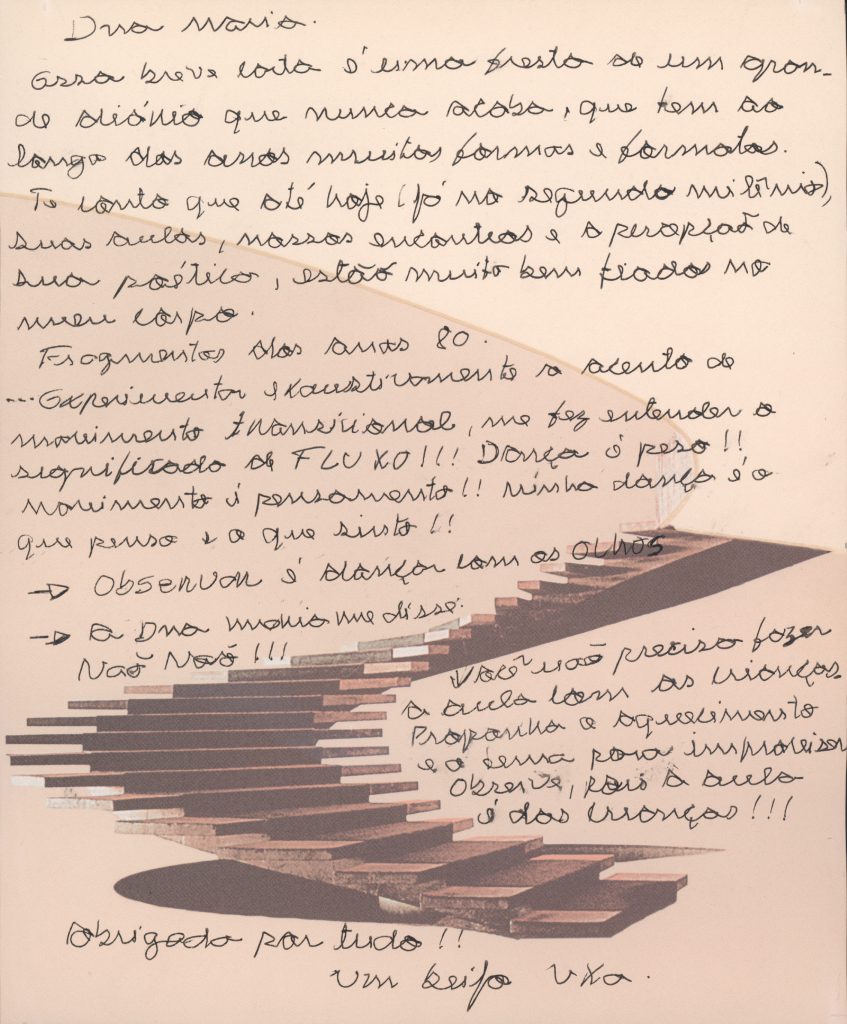 Dna Maria.
Essa breve carta é uma fresta de um gran-
de diário que nunca acaba, que tem ao
longo dos anos muitas formas e formatos.
Te conto que até hoje (já no segundo milênio),
suas aulas, nossos encontros e a percepção de
sua poética, estão muito bem fiados no
meu corpo.
Fragmentos dos anos 80.
...Experimentar exaustivamente o acento de
movimento transicional, me fez entender o
significado de FLUXO!!! Dança é peso!!
Movimento é pensamento!! Minha dança é o
que penso e o que sinto!!
→ Observar é dançar com os OLHOS
→ A Dna Maria me disse:
Não Não!!!
Você não precisa fazer
a aula com as crianças.
Proponha o aquecimento
e o tema para improvisar
Observe, pois a aula
é das crianças!!!
Obrigada por tudo!!
Um beijo Uxa.